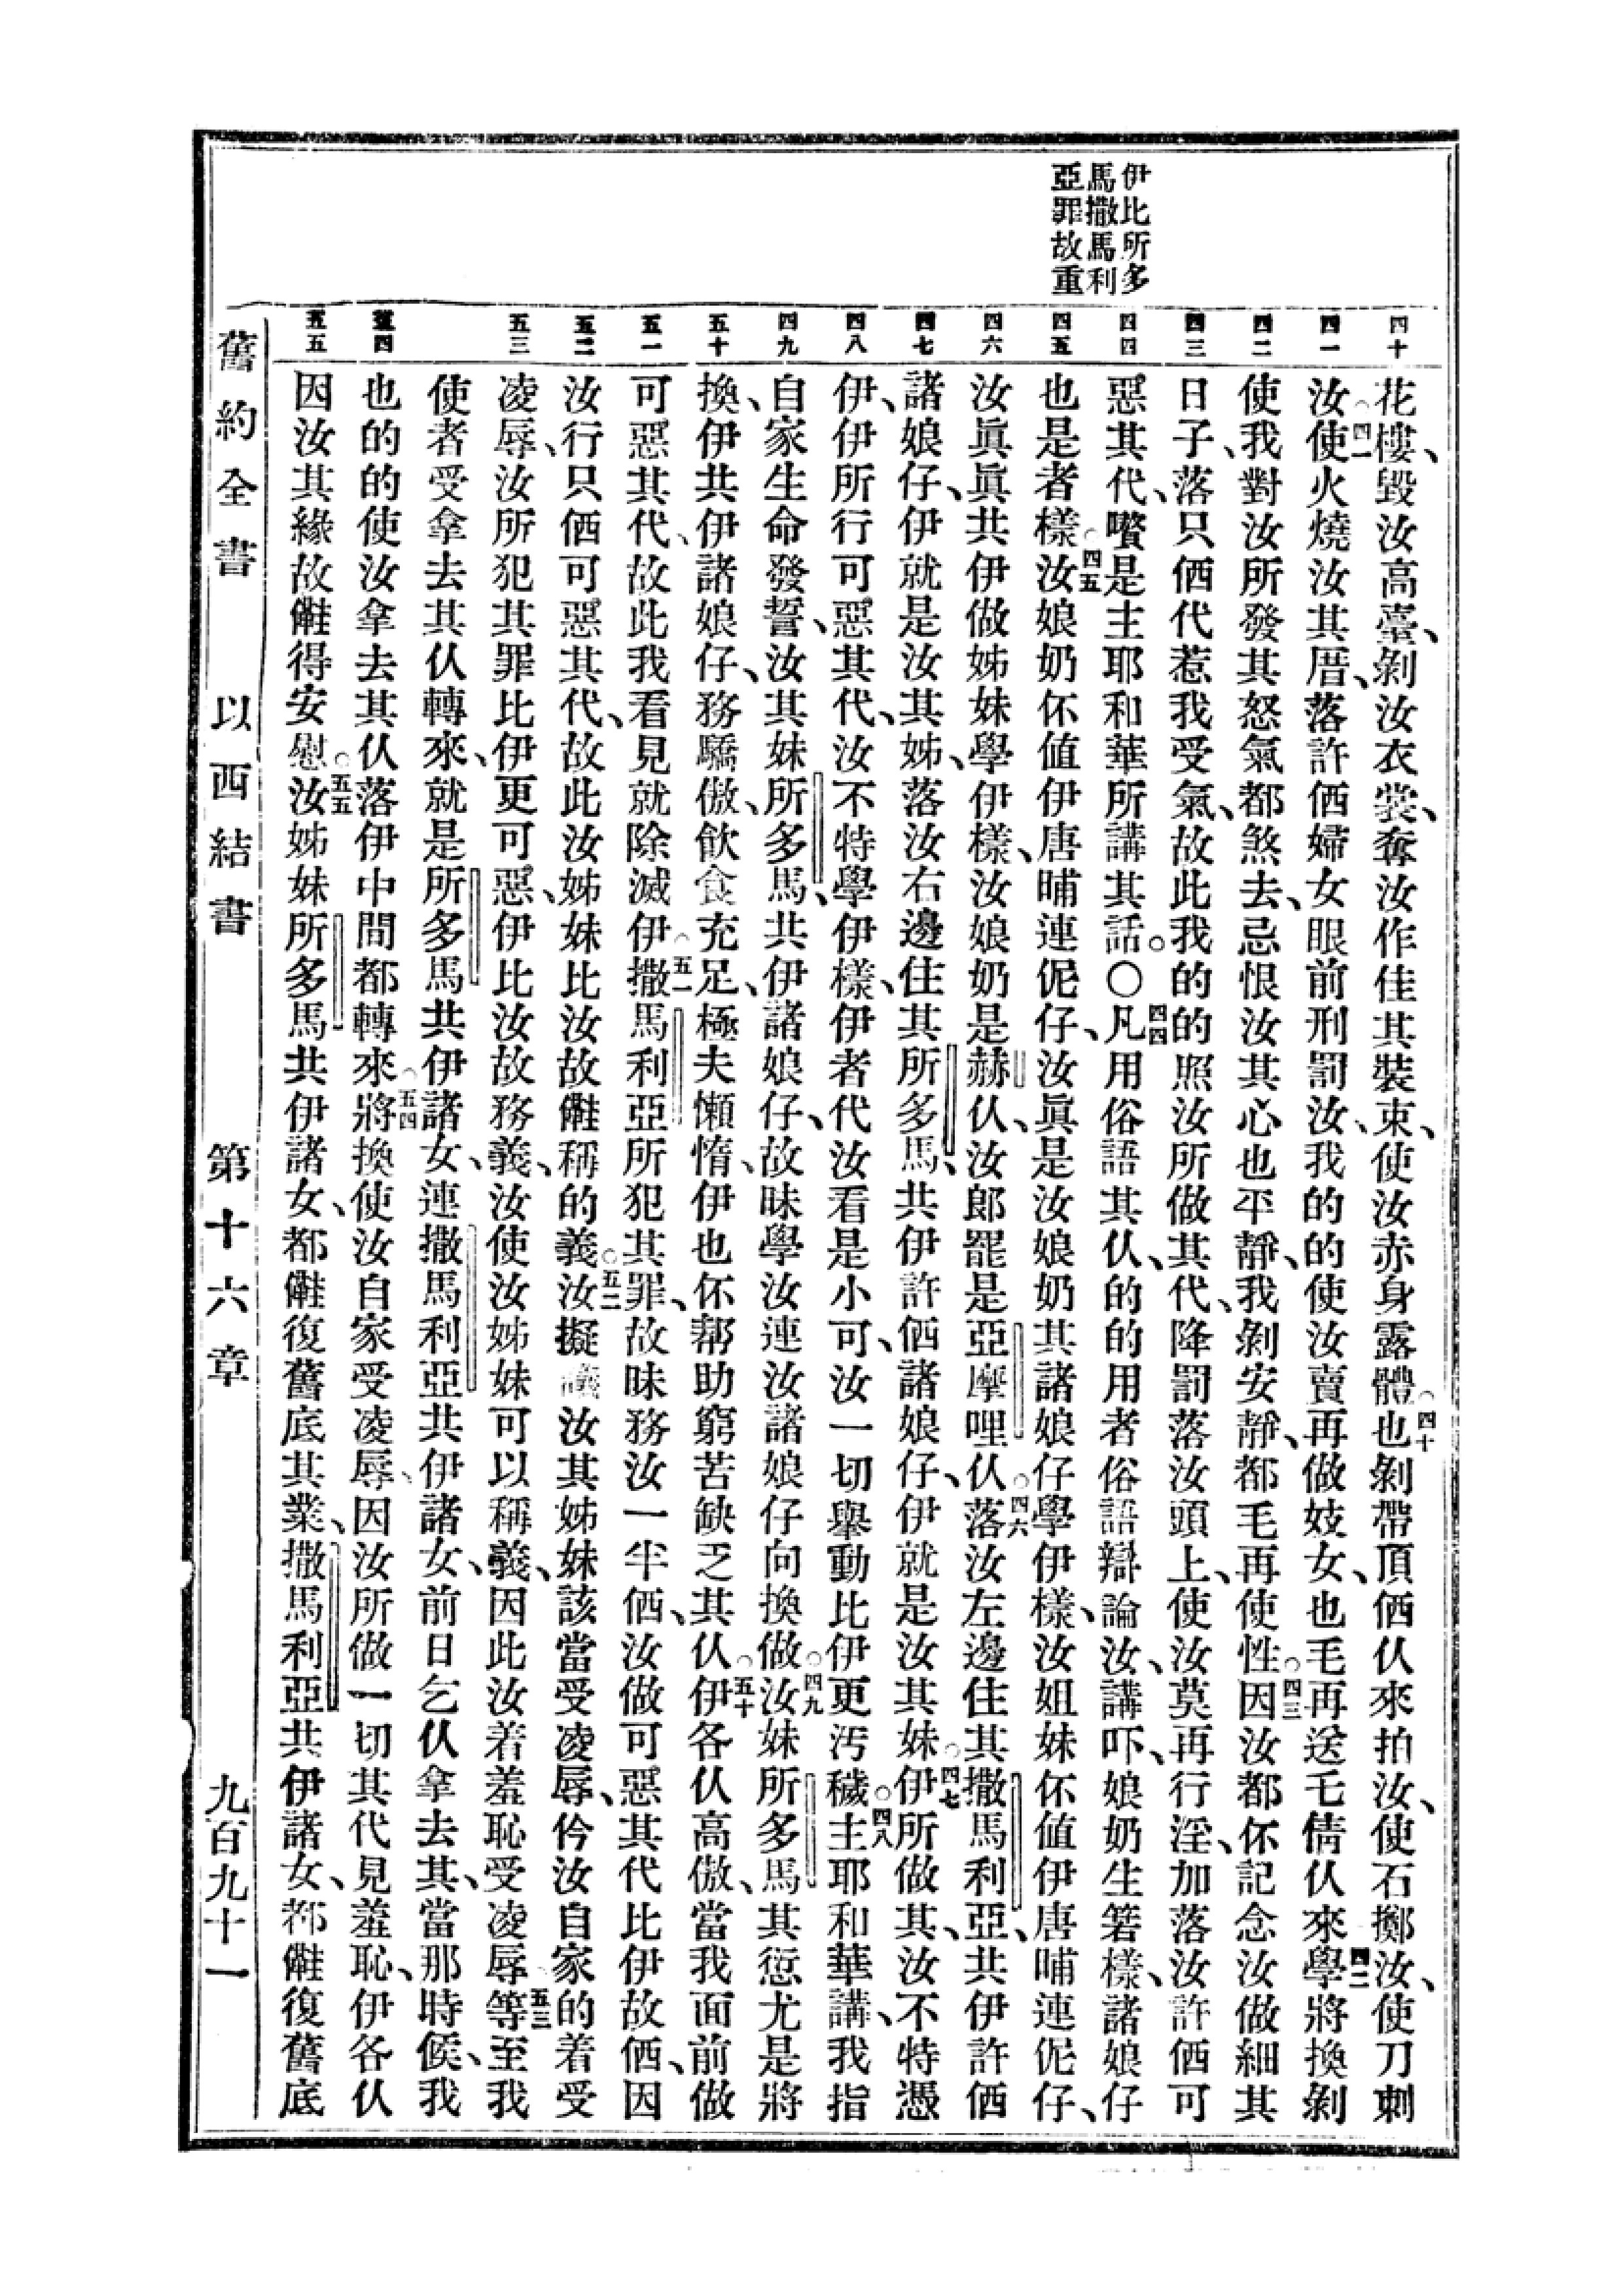 伊比所多
馬撒馬利
亞罪故重
四十 四一 四二 四三 四四 四五 四六 四七 四八 四九 五十 五一 五二 五三 五四 五五
花樓、毀汝高臺、剝汝衣裳、奪汝作佳其裝束、使汝赤身露體○四十也剝帶頂伵仈來拍汝、使石擲汝、使刀刺
汝○四一使火燒汝其厝、落許伵婦女眼前刑罰汝、我的的使汝賣再做妓女、也毛再送乇倩仈來○四二學將換剝
使我對汝所發其怒氣都煞去、忌恨汝其心也平靜、我剝安靜、都毛再使性○四三因汝都伓記念汝做細其
日子、落只伵代惹我受氣、故此我的的照汝所做其代、降罰落汝頭上、使汝莫再行淫、加落汝許伵可
惡其代、嚽是主耶和華所講其話。〇四四凡用俗語其仈、的的用者俗語辯論汝、講吓、娘奶生箬樣、諸娘仔
也是者樣○四五汝娘奶伓值伊唐晡連伲仔、汝眞是汝娘奶其諸娘仔學伊樣、汝姐妹伓值伊唐晡連伲仔、
汝眞眞共伊做姊妹、學伊樣、汝娘奶是赫仈、汝郎罷是亞摩哩仈○四六落汝左邊住其撒馬利亞、共伊許伵
諸娘仔、伊就是汝其姊、落汝右邊住其所多馬、共伊許伵諸娘仔、伊就是汝其妹○四七伊所做其、汝不特憑
伊、伊所行可惡其代、汝不特學伊樣、伊者代汝看是小可、汝一切舉動比伊更汚穢○四八主耶和華講、我指
自家生命發誓、汝其妹所多馬、共伊諸娘仔、故昧學汝連汝諸娘仔向換做○四九汝妹所多馬其愆尤是將
換、伊共伊諸娘仔、務驕傲、飮食充足、極夫懶惰、伊也伓幇助窮苦缺乏其仈○五十伊各仈高傲、當我面前做
可惡其代、故此我看見就除滅伊○五一撒馬利亞所犯其罪、故昧務汝一半伵、汝做可惡其代比伊故伵、因
汝行只伵可惡其代、故此汝姊妹比汝故㒕稱的義○五二汝擬議汝其姊妹該當受凌辱、仱汝自家的着受
凌辱、汝所犯其罪比伊更可惡、伊比汝故務義、汝使汝姊妹可以稱義、因此汝着羞恥受凌辱等○五三至我
使者受拿去其仈轉來、就是所多馬共伊諸女、連撒馬利亞共伊諸女、前日乞仈拿去其、當那時候、我
也的的使汝拿去其仈落伊中間都轉來○五四將換使汝自家受凌辱、因汝所做一切其代見羞恥、伊各仈
因汝其緣故㒕得安慰○五五汝姊妹所多馬共伊諸女、都㒕復舊底其業、撒馬利亞共伊諸女、都㒕復舊底
舊約全書 以西結書 第十六章 九百九十一